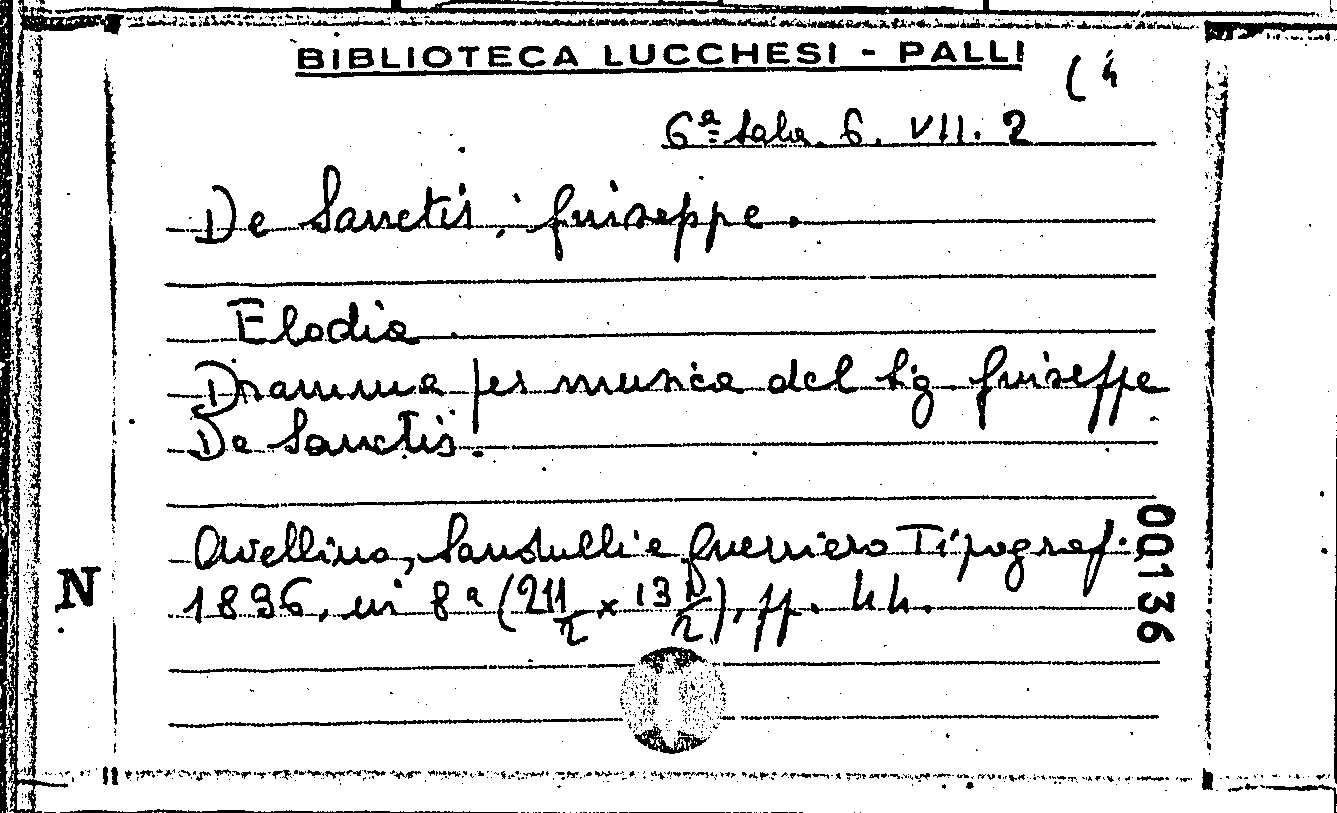 BIBLIOTECA LUCCHESI - PALLI
(4
6ª Sala. 6. VII. 2
De Sanctis, Giuseppe.
Elodia.
Dramma per musica del Sig. Giuseppe
De Sanctis.
Avellino, Sandulli e Guerriero Tipograf.
1896, in 8ª (21 1/2 x 13 1/2), pp. 44.
N
00136